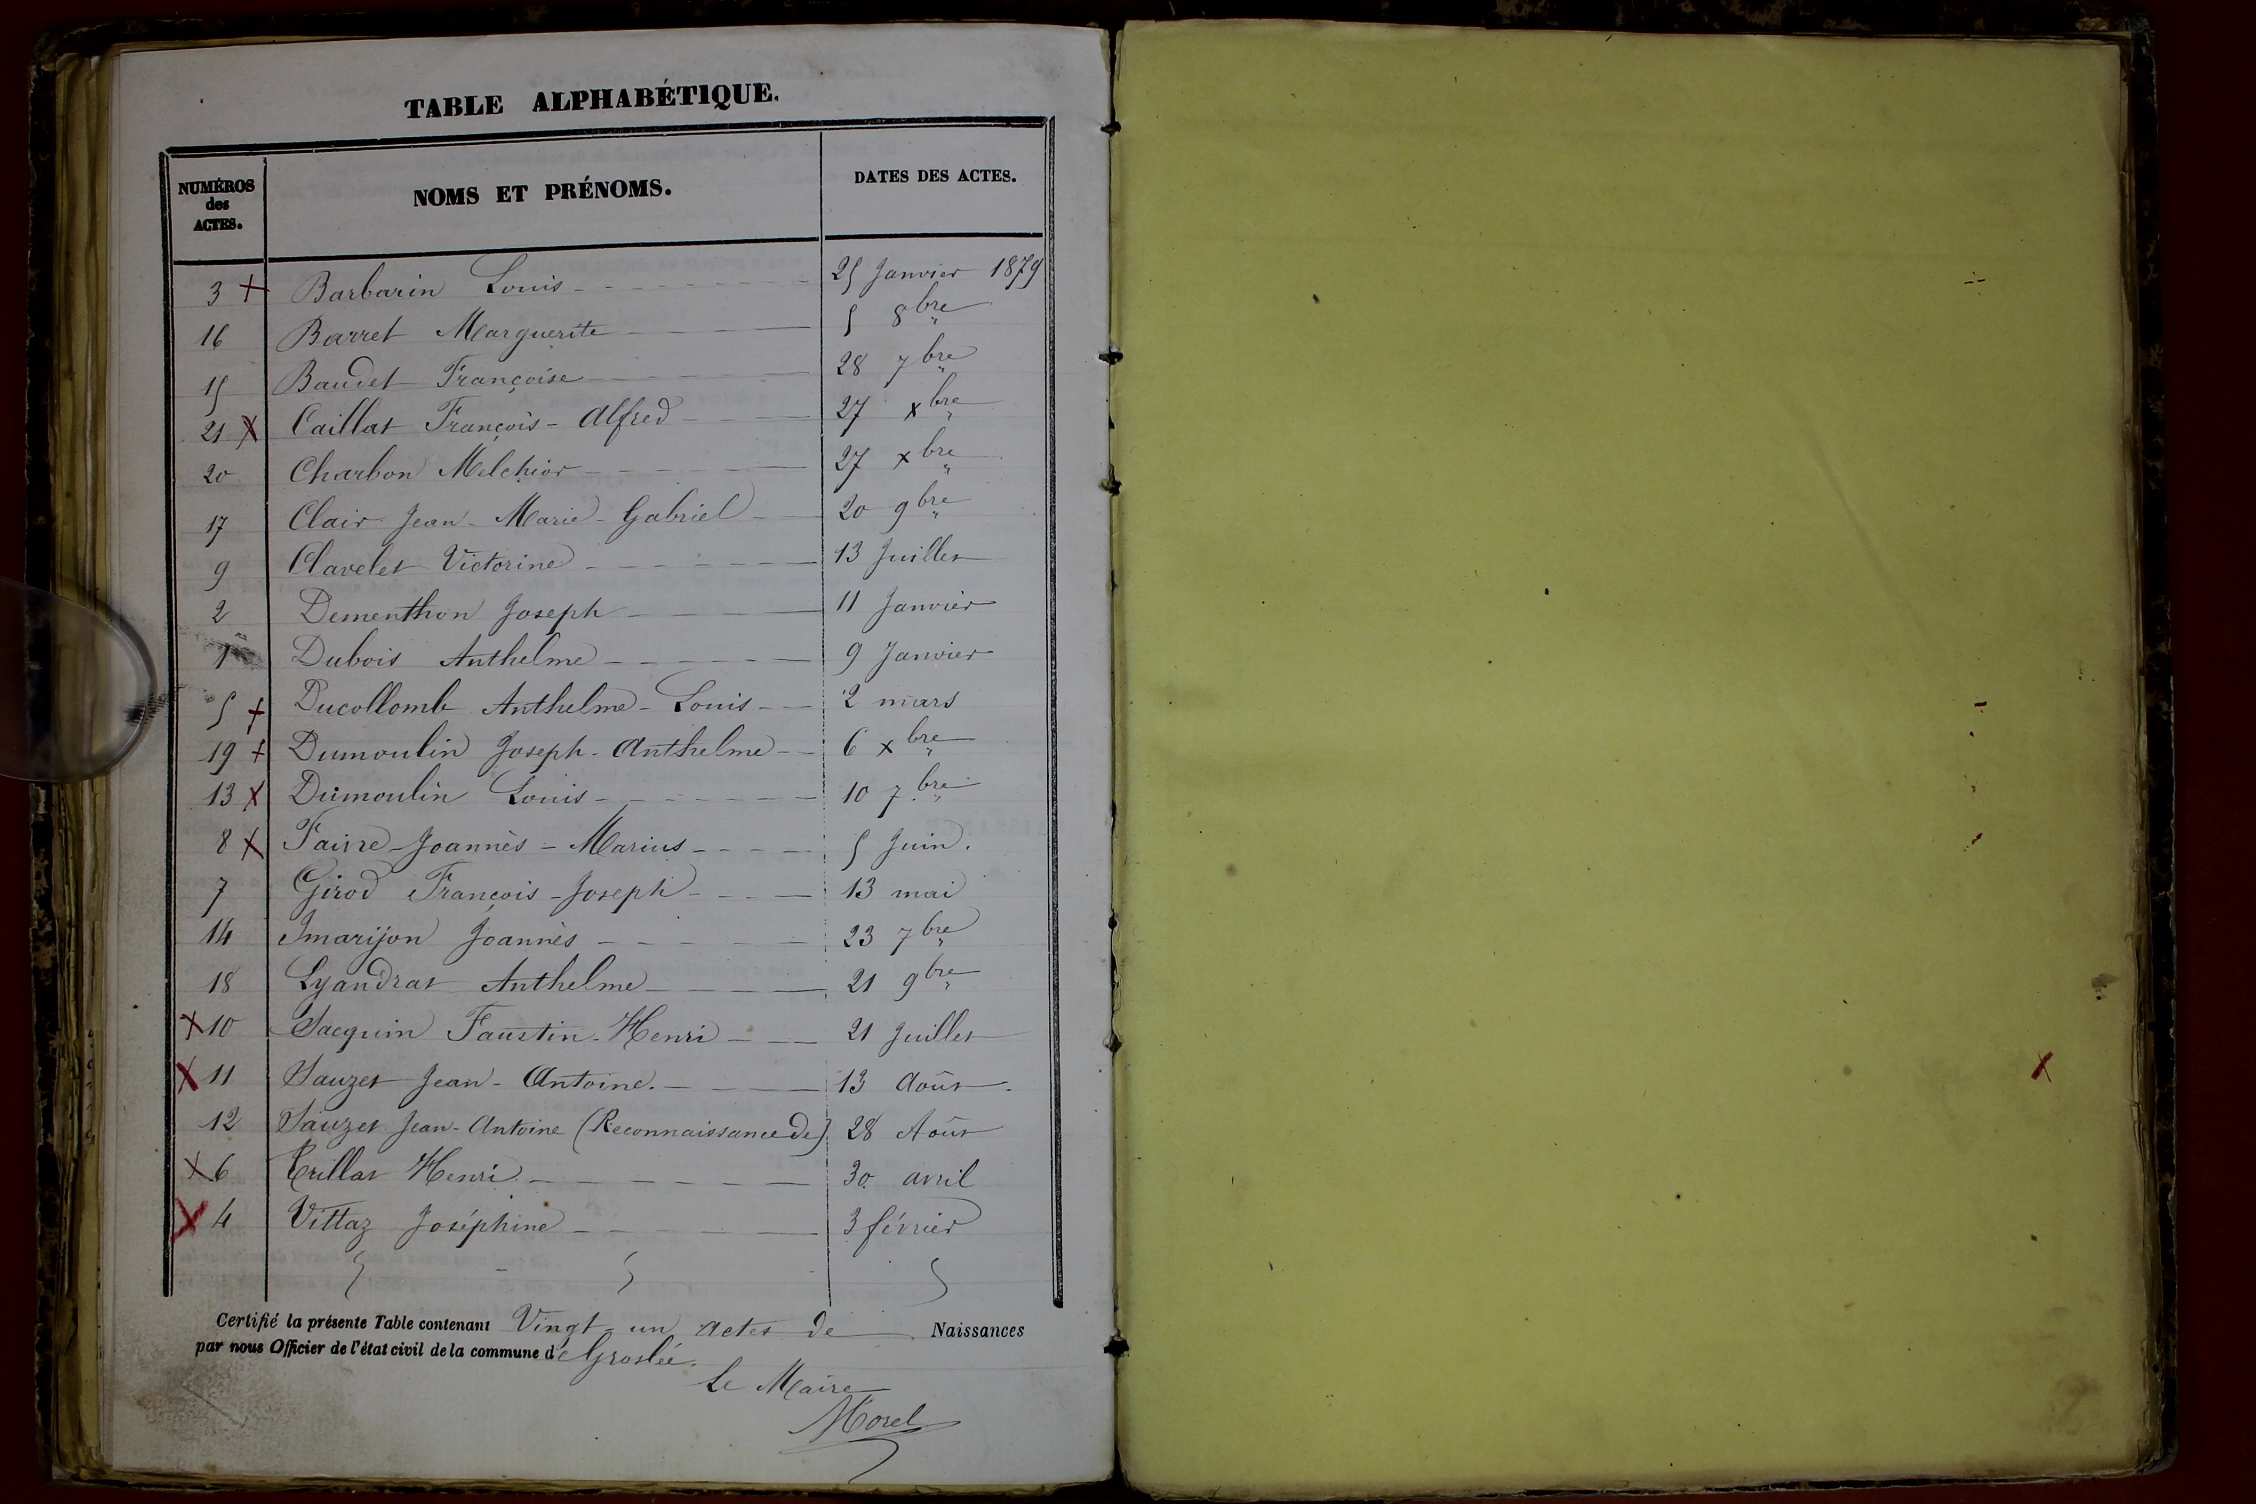 TABLE ALPHABÉTIQUE.
NUMÉROS des ACTES. NOMS ET PRÉNOMS. DATES DES ACTES.
3 + Barbarin Louis 25 Janvier 1879
16 Barret Marguerite 5 8bre "
15 Baudet Françoise 28 7bre "
21 X Caillat François - Alfred 27 xbre "
20 Charbon Melchior 27 xbre "
17 Clair Jean - Marie - Gabriel 20 9bre "
9 Clavelet Victorine 13 Juillet
2 Dementhon Joseph 11 Janvier
1 Dubois Anthelme 9 Janvier
5 + Ducollomb Anthelme - Louis 2 mars
19 + Dumoulin Joseph - Anthelme 6 xbre "
13 X Dumoulin Louis 10 7bre "
8 X Faivre Joannès - Marius 5 Juin.
7 Girod François - Joseph 13 mai
14 Imarijon Joannès 23 7bre "
18 Lyandrat Anthelme 21 9bre "
X 10 Jacquin Faustin - Henri 21 Juillet
X 11 Sauzet Jean - Antoine. 13 Août
12 Sauzet Jean - Antoine (Reconnaissance de) 28 Août
X 6 Trillat Henri 30 avril
X 4 Vittaz Joséphine 3 février
Certifié la présente Table contenant Vingt-un actes de Naissances
par nous Officier de l'état civil de la commune de Groslée.
Le Maire
Morel